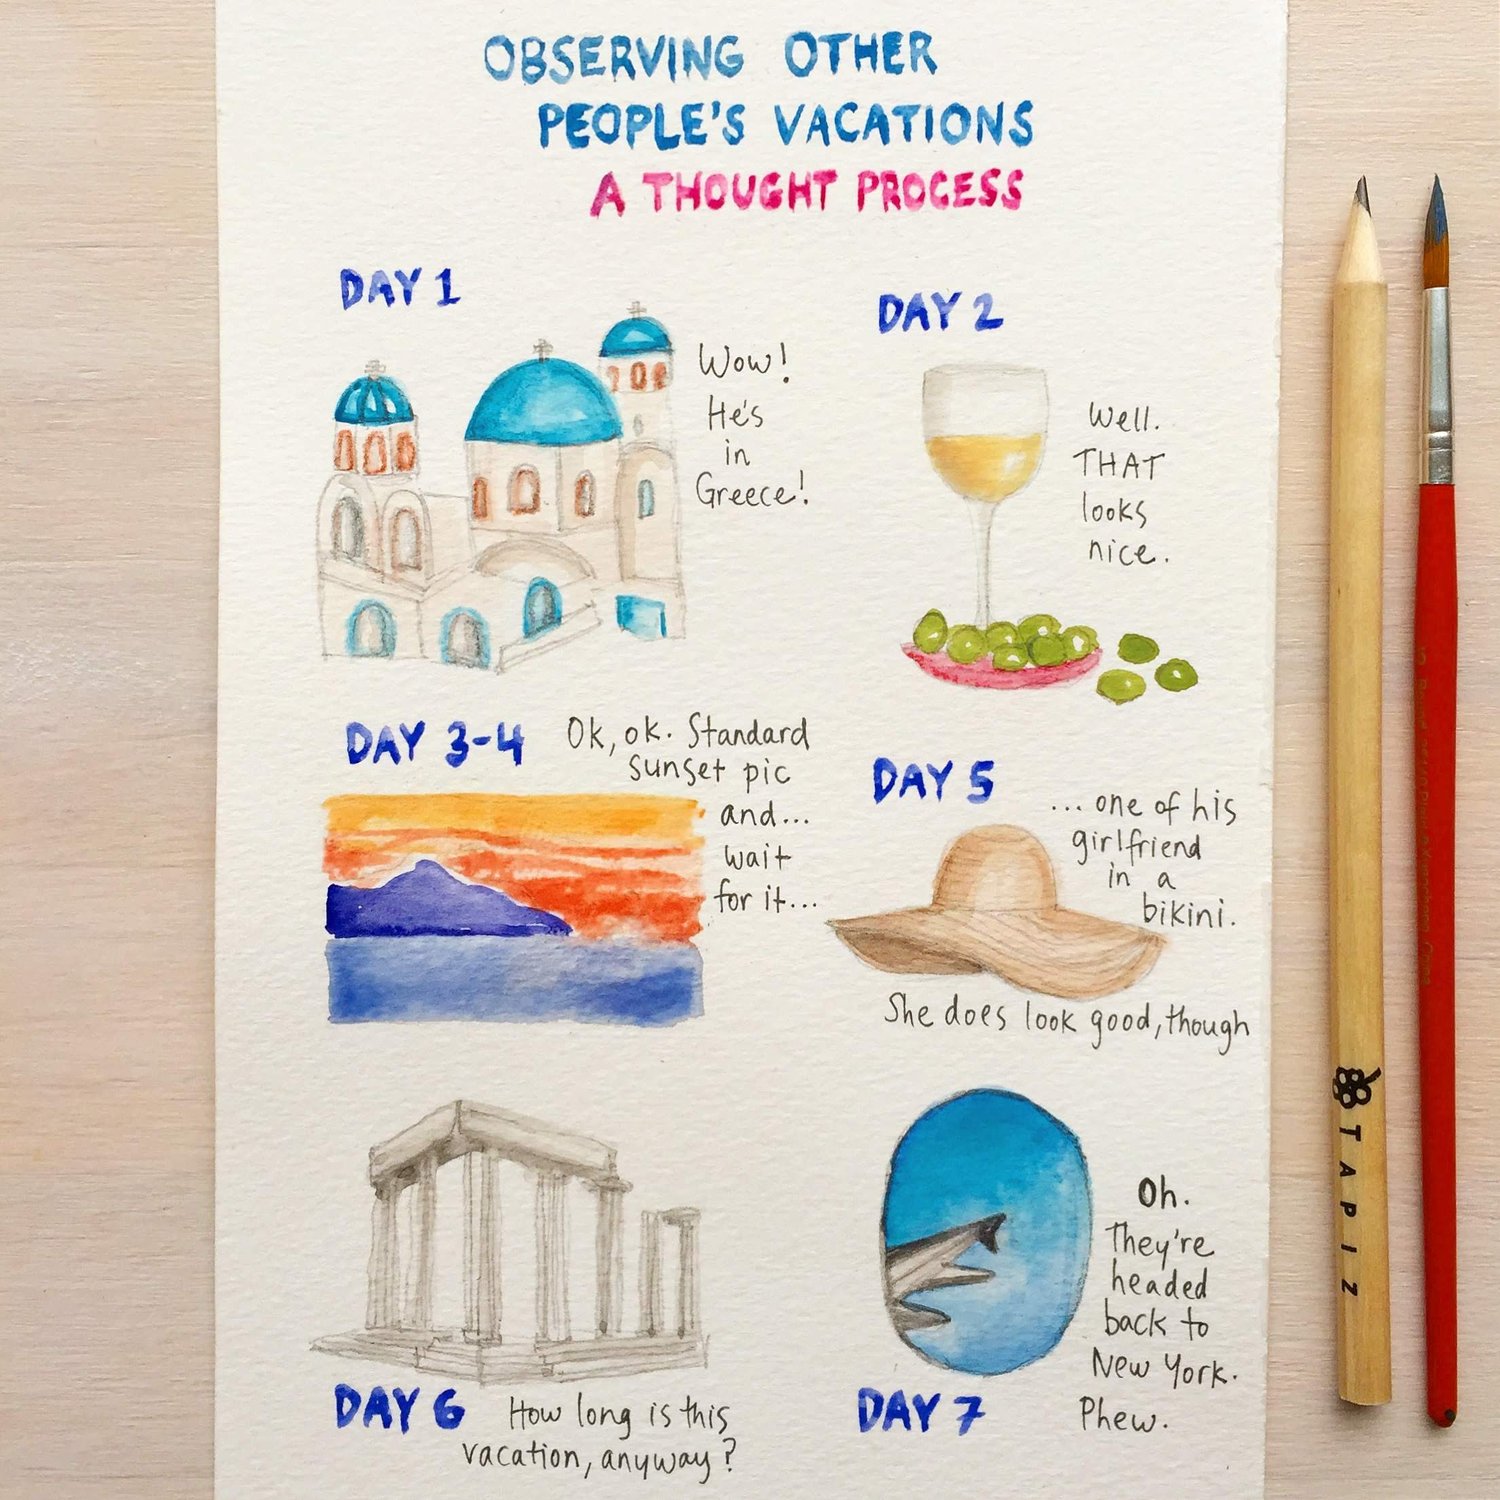 OBSERVING OTHER
PEOPLE'S VACATIONS
A THOUGHT PROCESS
DAY 1
Wow!
He's
in
Greece!
DAY 2
Well.
THAT
looks
nice.
DAY 3-4
Ok, ok. Standard
sunset pic
and...
wait
for it...
DAY 5
...one of his
girlfriend
in a
bikini.
She does look good, though
DAY 6
How long is this
vacation, anyway?
DAY 7
Oh.
They're
headed
back to
New York.
Phew.
TAPIZ